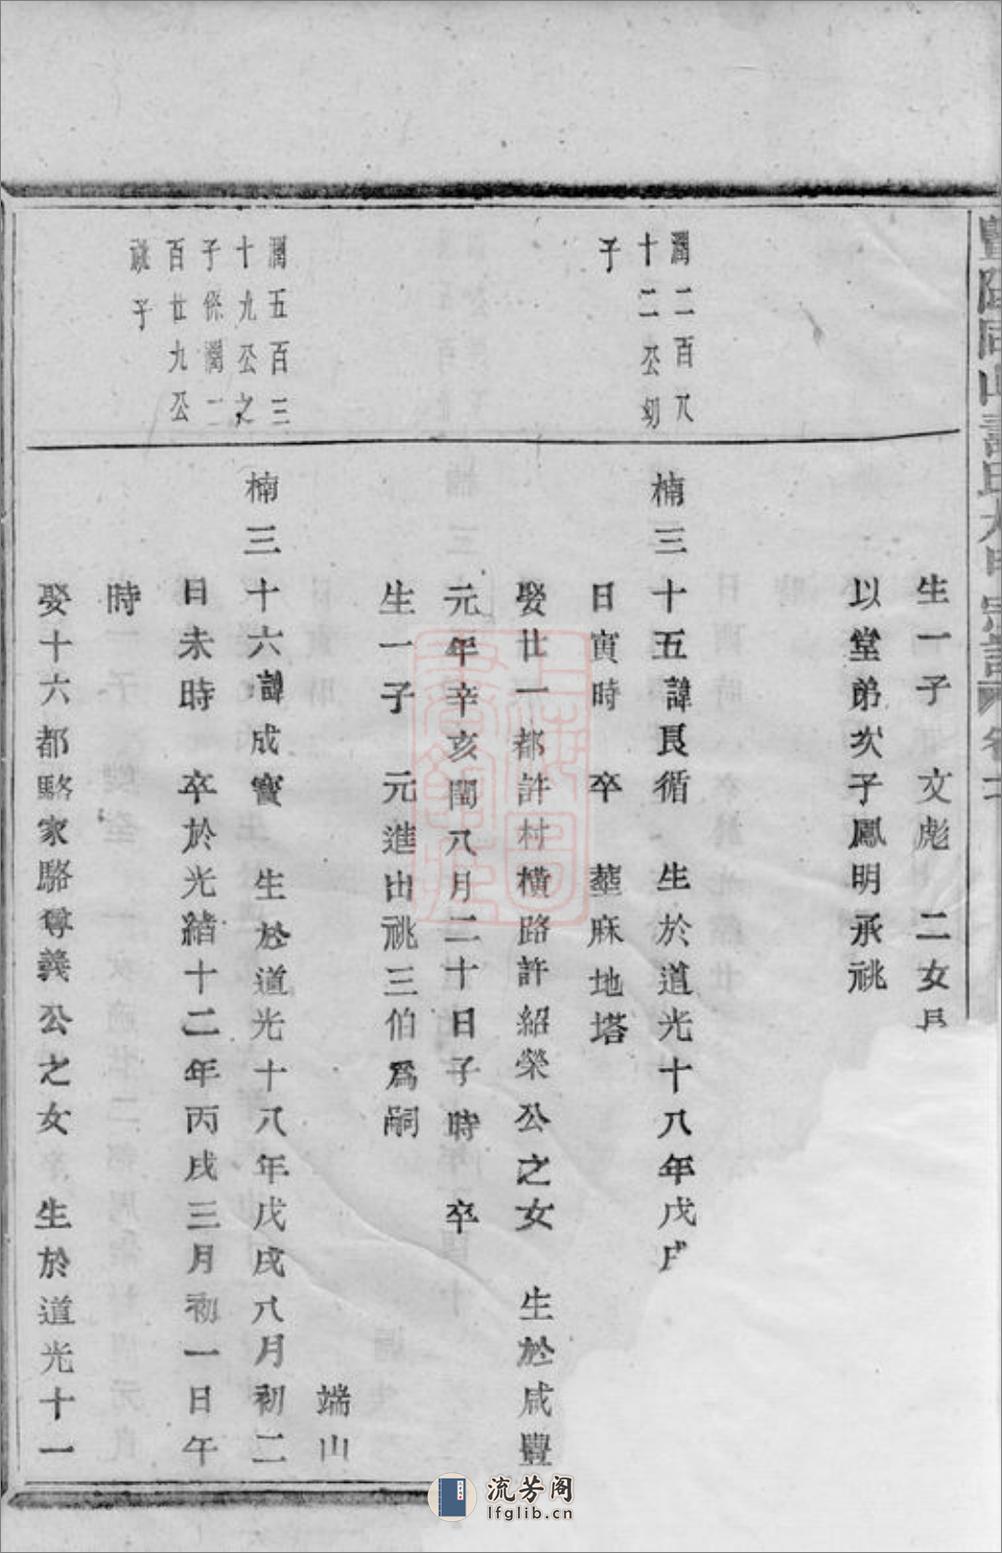 生一子　文彪　二女
以堂弟次子鳳明承祧
潤二百八
十二公幼
子
楠三十五諱良循　生於道光十八年戊
日寅時　卒　塟麻地塔
娶廿一都許村橫路許紹榮公之女　生於咸豐
元年辛亥閏八月二十日子時　卒
生一子　元進出祧三伯爲嗣
端山
潤五百三
十九公之
子係潤二
百廿九公
祧子
楠三十六諱成寳　生於道光十八年戊戌八月初二
日未時　卒於光緒十二年丙戌三月初一日午
時
娶十六都駱家駱尊義公之女　生於道光十一
流芳阁
lfglib.cn